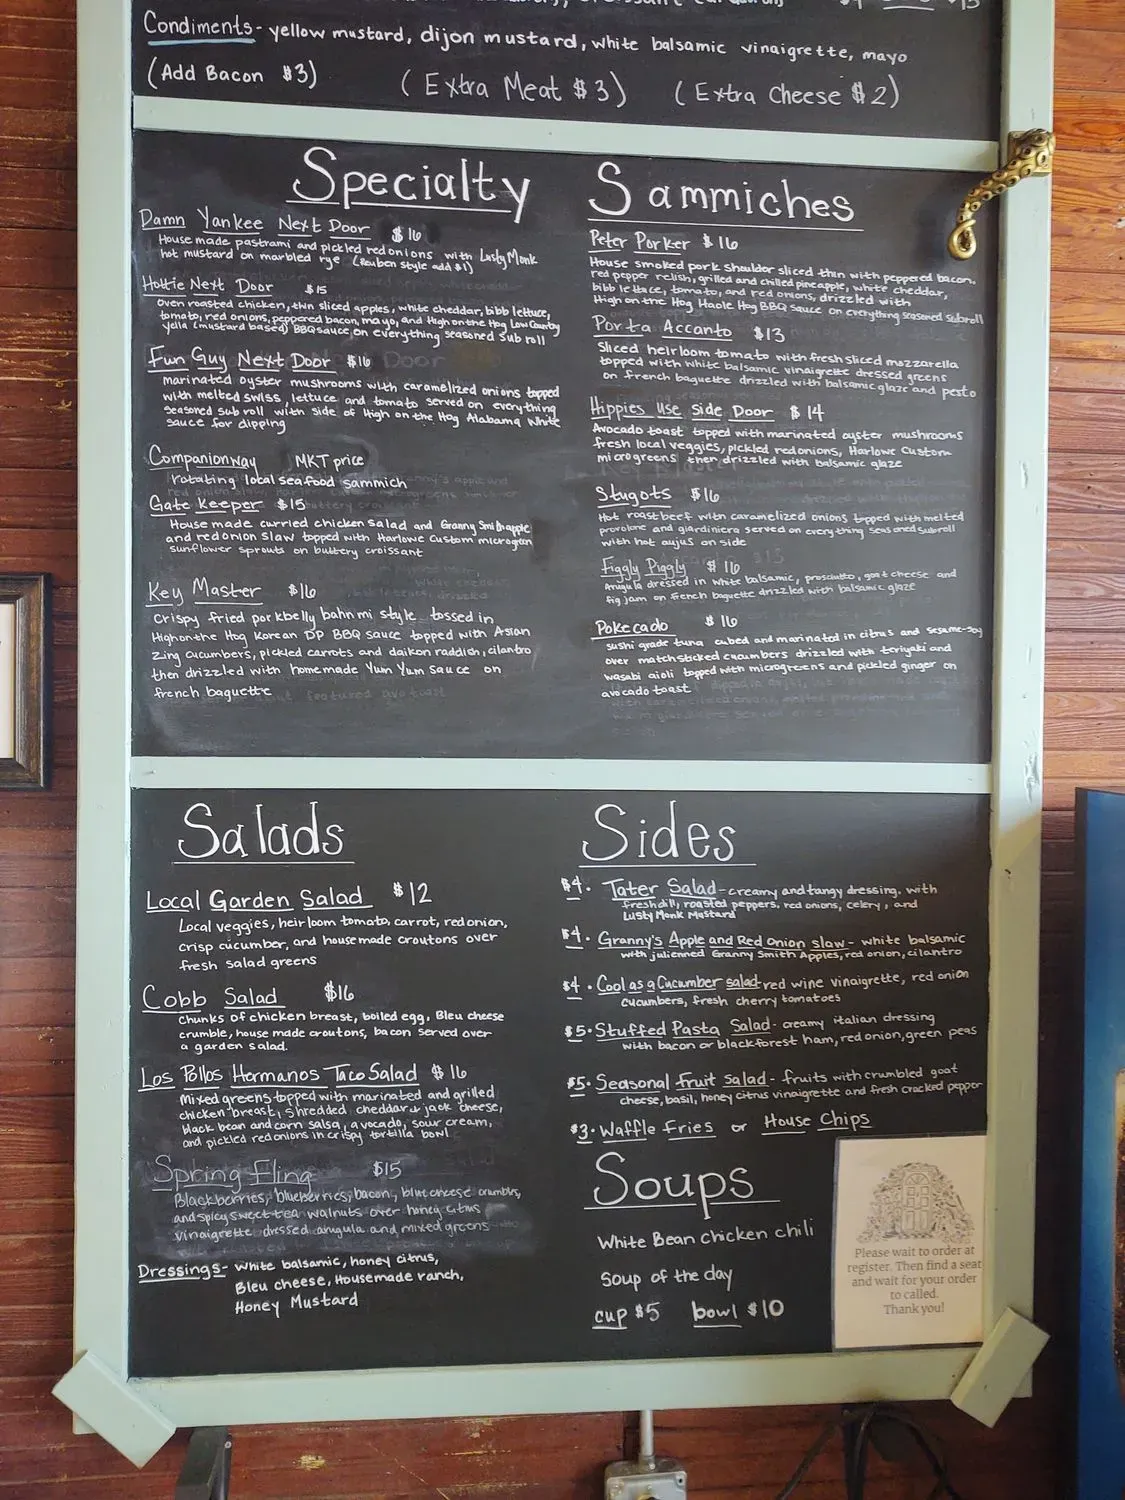 $15
Condiments- yellow mustard, dijon mustard, white balsamic vinaigrette, mayo
(Add Bacon $3) (Extra Meat $3) (Extra Cheese $2)
Specialty Sammiches
Damn Yankee Next Door $16
House made pastrami and pickled red onions with Lusty Monk
hot mustard on marbled rye (Reuben style add $1)
Hottie Next Door $15
Oven roasted chicken, thin sliced apples, white cheddar, bibb lettuce,
tomato, red onions, peppered bacon, mayo, and High on the Hog Low Country
yella (mustard based) BBQ sauce on everything seasoned sub roll
Fun Guy Next Door $16
marinated oyster mushrooms with caramelized onions topped
with melted swiss, lettuce and tomato served on everything
seasoned sub roll with side of High on the Hog Alabama White
sauce for dipping
Companionway MKT price
rotating local seafood sammich
Gate Keeper $15
House made curried chicken salad and Granny Smith apple
and red onion slaw topped with Harlowe Custom microgreen
sunflower sprouts on buttery croissant
Key Master $16
Crispy fried porkbelly bahn mi style tossed in
High on the Hog Korean DP BBQ sauce topped with Asian
Zing cucumbers, pickled carrots and daikon raddish, cilantro
then drizzled with homemade Yum Yum sauce on
french baguette
Peter Porker $16
House smoked pork shoulder sliced thin with peppered bacon,
red pepper relish, grilled and chilled pineapple, white cheddar,
bibb lettuce, tomato, and red onions, drizzled with
High on the Hog Haole Hog BBQ sauce on everything seasoned subroll
Porta Accanto $13
Sliced heirloom tomato with fresh sliced mozzarella
topped with white balsamic vinaigrette dressed greens
on french baguette drizzled with balsamic glaze and pesto
Hippies Use Side Door $14
Avocado toast topped with marinated oyster mushrooms
fresh local veggies, pickled red onions, Harlowe Custom
microgreens then drizzled with balsamic glaze
Stugots $16
Hot roast beef with caramelized onions topped with melted
provolone and giardiniera served on everything seasoned subroll
with hot aujus on side
Figgly Piggly $16
Arugula dressed in white balsamic, prosciutto, goat cheese and
fig jam on french baguette drizzled with balsamic glaze
Pokecado $16
sushi grade tuna cubed and marinated in citrus and sesame-soy
over matchsticked cucumbers drizzled with teriyaki and
wasabi aioli topped with microgreens and pickled ginger on
avocado toast
Salads
Local Garden Salad $12
Local veggies, heirloom tomato, carrot, red onion,
crisp cucumber, and housemade croutons over
fresh salad greens
Cobb Salad $16
Chunks of chicken breast, boiled egg, Bleu cheese
crumble, house made croutons, bacon served over
a garden salad.
Los Pollos Hermanos Taco Salad $16
Mixed greens topped with marinated and grilled
chicken breast, shredded cheddar & jack cheese,
black bean and corn salsa, avocado, sour cream,
and pickled red onions in crispy tortilla bowl
Spring Fling $15
Blackberries, blueberries, bacon, blue cheese crumbles,
and spicy sweet tea walnuts over honey citrus
vinaigrette dressed arugula and mixed greens
Dressings- White balsamic, honey citrus,
Bleu cheese, Housemade ranch,
Honey Mustard
Sides
$4. Tater Salad- creamy and tangy dressing. with
fresh dill, roasted peppers, red onions, celery, and
Lusty Monk Mustard
$4. Granny's Apple and Red Onion slaw- white balsamic
with julienned Granny Smith Apples, red onion, cilantro
$4. Cool as a Cucumber salad- red wine vinaigrette, red onion
cucumbers, fresh cherry tomatoes
$5. Stuffed Pasta Salad- creamy italian dressing
with bacon or blackforest ham, red onion, green peas
$5. Seasonal Fruit Salad- fruits with crumbled goat
cheese, basil, honey citrus vinaigrette and fresh cracked pepper
$3. Waffle Fries or House Chips
Soups
White Bean chicken chili
Soup of the day
cup $5 bowl $10
Please wait to order at
register. Then find a seat
and wait for your order
to called.
Thank you!